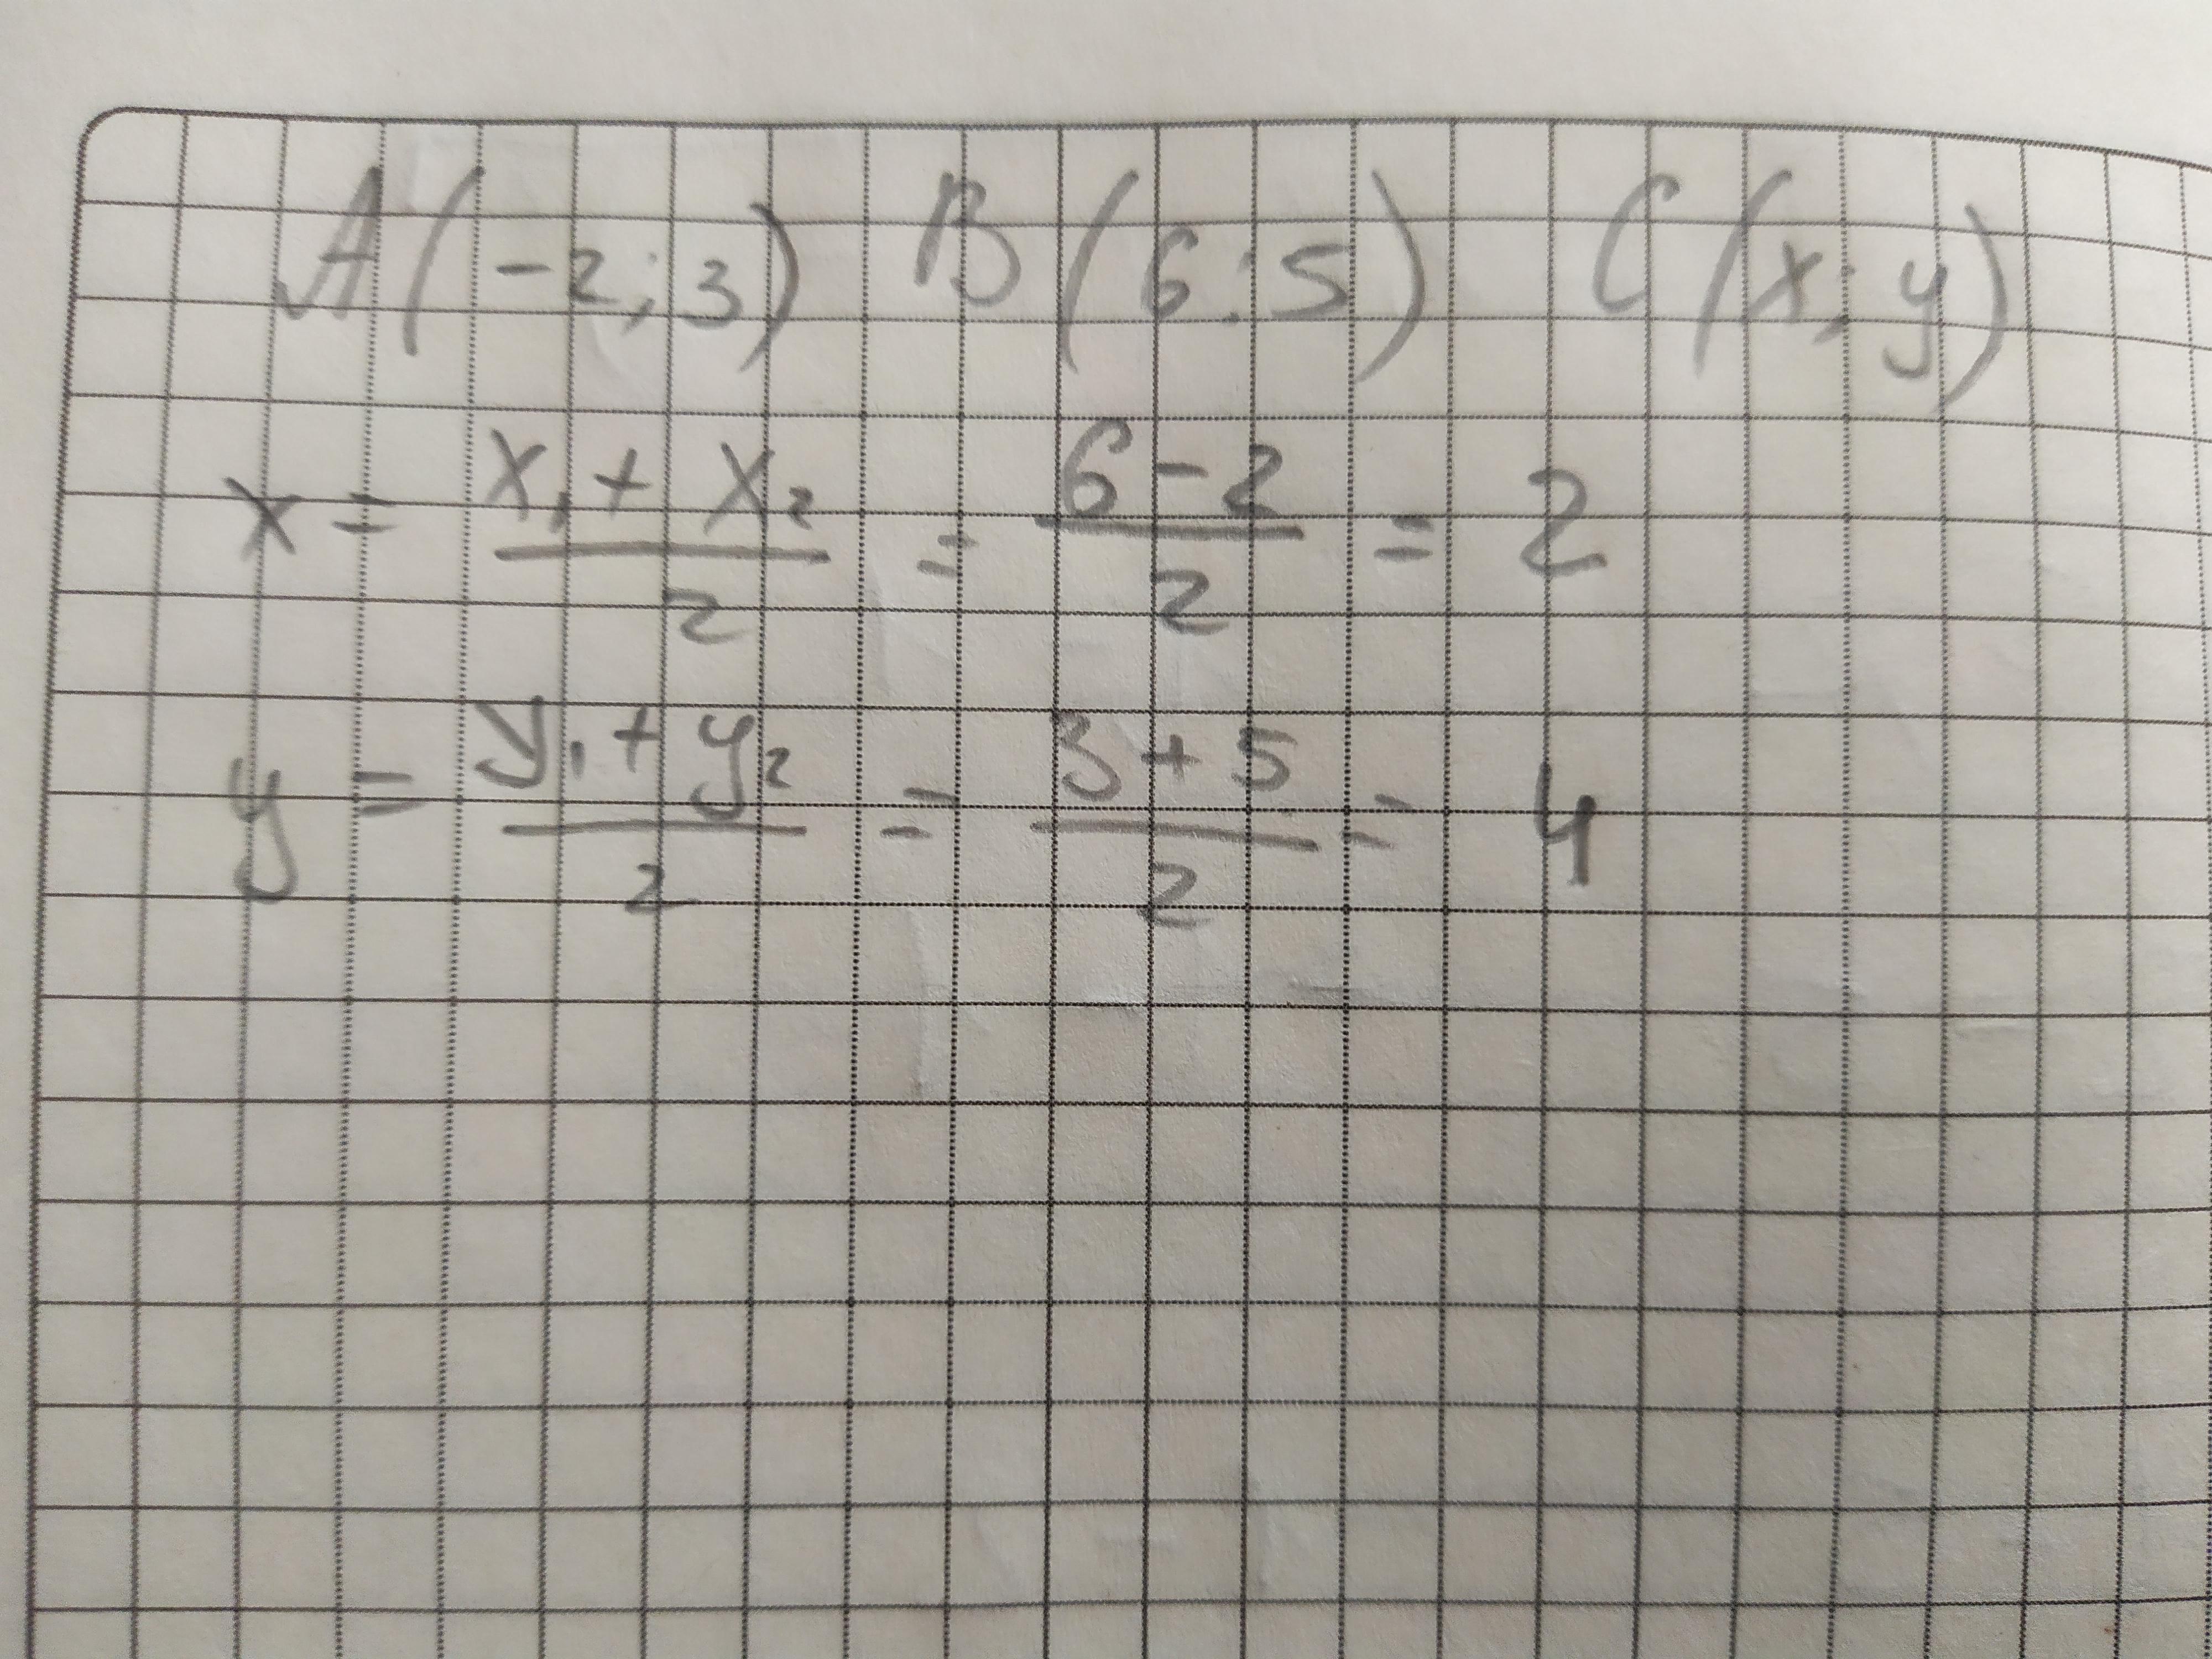 A(-2;3) B(6;5) C(x;y)
x = (x₁ + x₂)/2 = (6 - 2)/2 = 2
y = (y₁ + y₂)/2 = (3 + 5)/2 = 4